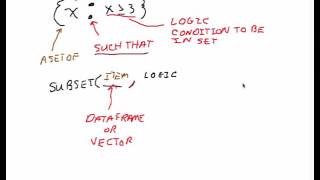 { x : x ≥ 3 }
LOGIC
CONDITION TO BE
IN SET
SUCH THAT
A SET OF
SUBSET( ITEM , LOGIC
DATAFRAME
OR
VECTOR